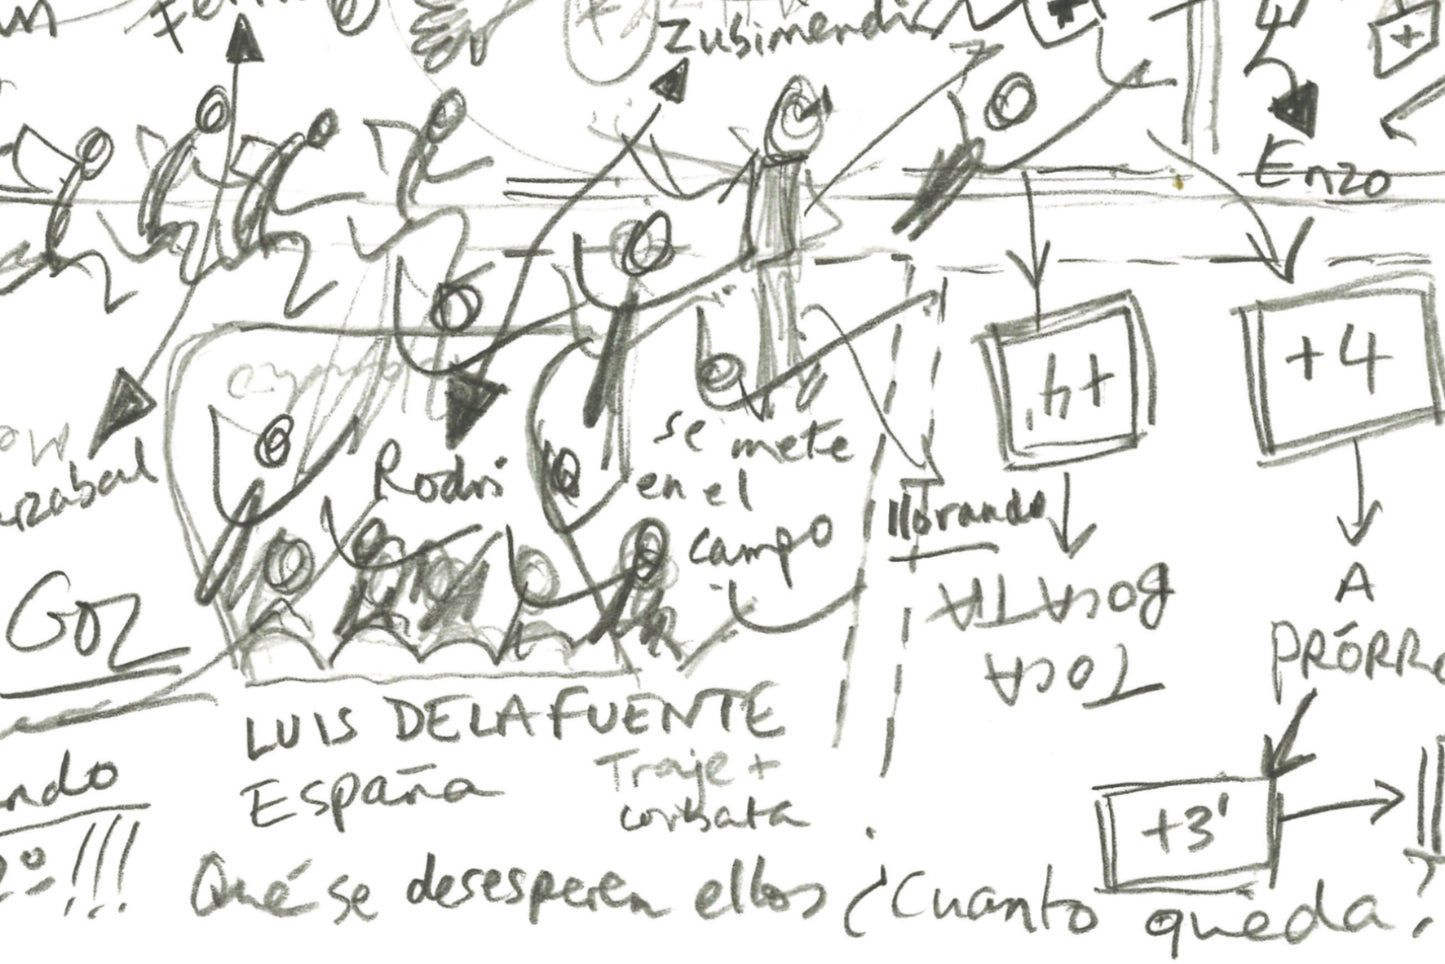 Zubimendi
Enzo
+4'
+4
se mete
en el
campo
Rodri
llorando
TOCA
BOCATA
A
PRÓRR
GOZ
LUIS DE LA FUENTE
España
Traje +
corbata
ndo
2º!!!
+3'
Qué se desesperen ellos ¿Cuanto queda?